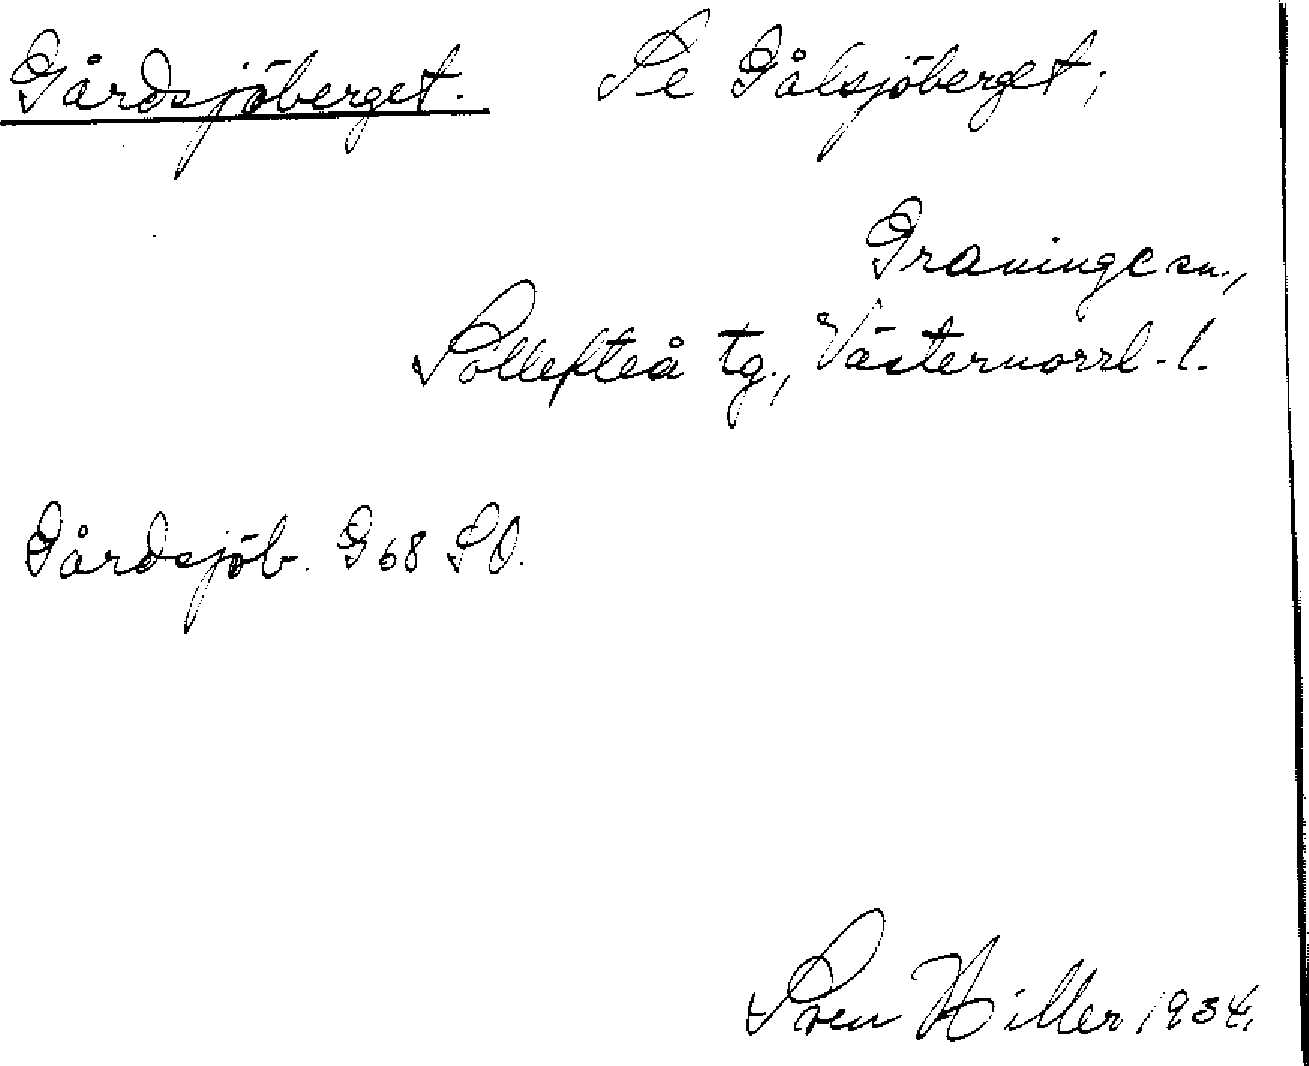 Gårdsjöberget. Se Gålsjöberget;
Graninge sn.,
Sollefteå tg., Västernorrl. l.
Gårdsjöb. G 68 SO.
Sven Hiller 1934.